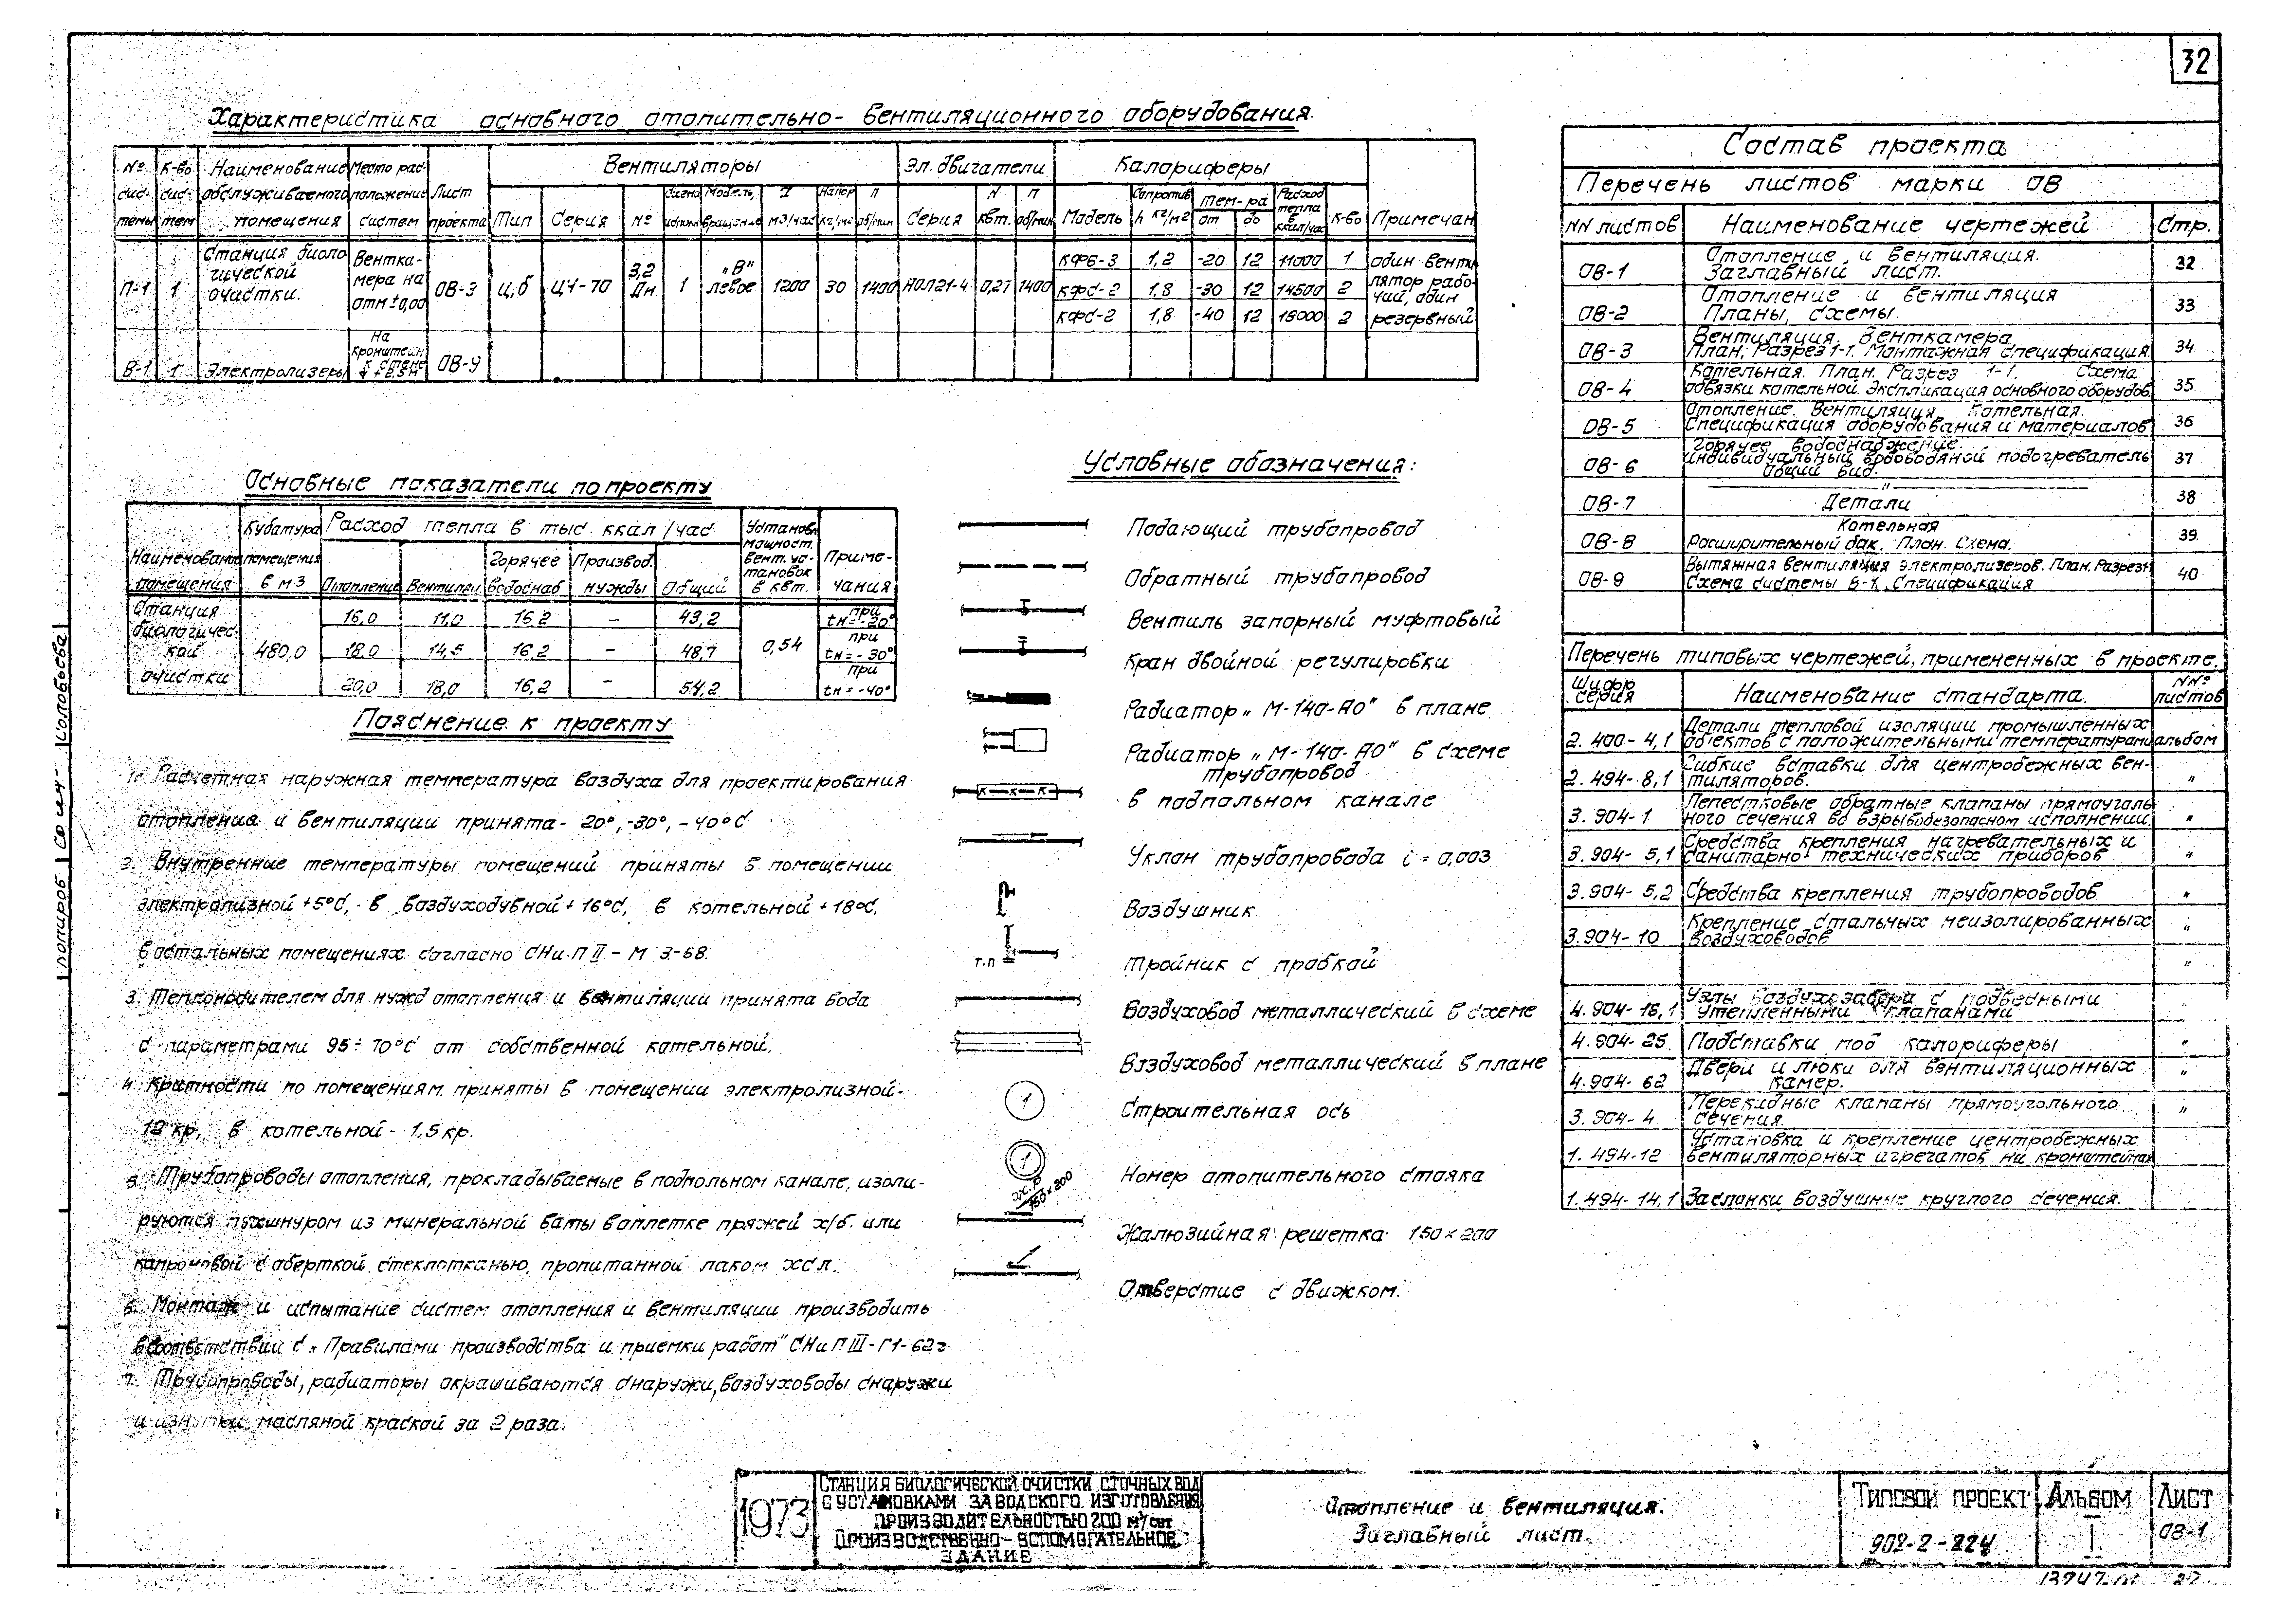 32
Характеристика основного отопительно-вентиляционного оборудования
№ системы
К-во систем
Наименование обслуживаемого помещения
Место расположение систем
Лист проекта
Вентиляторы
Эл. двигатели
Калориферы
Примечан.
Тип Серия № Схема исполн. Модель, вращение м3/час Напор кг/м2 п об/мин Серия N квт. п об/мин Модель Сопротив h кг/м2 Тем-ра от до Расход тепла в ккал/час К-во
П-1 1 Станция биологической очистки. Венткамера на отм ±0,00 ОВ-3 Ц,б Ц4-70 3,2 1 „В" левое 1200 30 1400 АОЛ21-4 0,27 1400
КФБ-3 1,2 -20 12 11000 1
КФС-2 1,8 -30 12 14500 2
КФС-2 1,8 -40 12 18000 2
один вентилятор рабочий, один резервный
В-1 1 Электролизеры На кронштейн. к стене + 2,5 м ОВ-9
Основные показатели по проекту
Наименование помещения
Кубатура помещения в м3
Расход тепла в тыс. ккал/час
Отопление Вентиляц. Горячее водоснаб Производ. нужды Общий
Установ. мощност. вент. установок в квт.
Примечания
Станция биологической очистки 480,0
16,0 11,0 16,2 – 43,2 при tн=-20°
18,0 14,5 16,2 – 48,7 0,54 при tн=-30°
20,0 18,0 16,2 – 54,2 при tн=-40°
Пояснение к проекту
1. Расчетная наружная температура воздуха для проектирования
отопления и вентиляции принята- 20°, -30°, -40°С
2. Внутренние температуры помещений приняты в помещении
электролизной +5°С, в воздуходувной + 16°С, в котельной +18°С,
в остальных помещениях согласно СНиП II – М 3-68.
3. Теплоносителем для нужд отопления и вентиляции принята вода
с параметрами 95÷70°С от собственной котельной.
4. Кратности по помещениям приняты в помещении электролизной-
12 кр, в котельной- 1,5 кр.
5. Трубопроводы отопления, прокладываемые в подпольном канале, изоли-
руются пухшнуром из минеральной ваты в оплетке пряжей х/б. или
капроновой с оберткой стеклотканью, пропитанной лаком ХСЛ.
6. Монтаж и испытание систем отопления и вентиляции производить
в соответствии с „Правилами производства и приемки работ" СНиП III-Г1-62г
7. Трубопроводы, радиаторы окрашиваются снаружи, воздуховоды снаружи
и изнутри масляной краской за 2 раза.
Условные обозначения:
Подающий трубопровод
Обратный трубопровод
Вентиль запорный муфтовый
Кран двойной регулировки
Радиатор „М-140-АО" в плане
Радиатор „М-140-АО" в схеме
К К К
трубопровод
в подпольном канале
Уклон трубопровода i = 0,003
Воздушник
т.п
Тройник с пробкой
Воздуховод металлический в схеме
Воздуховод металлический в плане
1
Строительная ось
1
Номер отопительного стояка
ж.р
150×200
Жалюзийная решетка 150×200
Отверстие с движком.
Состав проекта
Перечень листов марки ОВ
NN листов Наименование чертежей Стр.
ОВ-1 Отопление и вентиляция. Заглавный лист. 32
ОВ-2 Отопление и вентиляция Планы, схемы. 33
ОВ-3 Вентиляция. Венткамера План, Разрез 1-1. Монтажная спецификация 34
ОВ-4 Котельная. План. Разрез 1-1. Схема обвязки котельной. Экспликация основного оборудов. 35
ОВ-5 Отопление. Вентиляция. Котельная. Спецификация оборудования и материалов 36
ОВ-6 Горячее водоснабжение. Индивидуальный водоводяной подогреватель Общий вид. 37
ОВ-7 — " — Детали 38
ОВ-8 Котельная Расширительный бак. План. Схема. 39
ОВ-9 Вытяжная вентиляция электролизеров. План. Разрез 1-1 Схема системы В-1. Спецификация 40
Перечень типовых чертежей, примененных в проекте.
Шифр серия Наименование стандарта. NN° листов
2.400-4,1 Детали тепловой изоляции промышленных объектов с положительными температурами альбом
2.494-8,1 Гибкие вставки для центробежных вентиляторов. "
3.904-1 Лепестковые обратные клапаны прямоугольного сечения во взрывобезопасном исполнении "
3.904-5,1 Средства крепления нагревательных и санитарно-технических приборов "
3.904-5,2 Средства крепления трубопроводов "
3.904-10 Крепление стальных неизолированных воздуховодов "
"
4.904-16,1 Узлы воздухозабора с подвесными утепленными клапанами "
4.904-25 Подставки под калориферы "
4.904-62 Двери и люки для вентиляционных камер. "
3.904-4 Перекидные клапаны прямоугольного сечения. "
1.494-12 Установка и крепление центробежных вентиляторных агрегатов на кронштейнах
1.494-14,1 Заслонки воздушные круглого сечения.
копировал Соловьева
1973
Станция биологической очистки сточных вод
с установками заводского изготовления
производительностью 200 м³/сут
Производственно-вспомогательное
здание
Отопление и вентиляция.
Заглавный лист.
Типовой проект
902-2-224
Альбом
I
Лист
ОВ-1